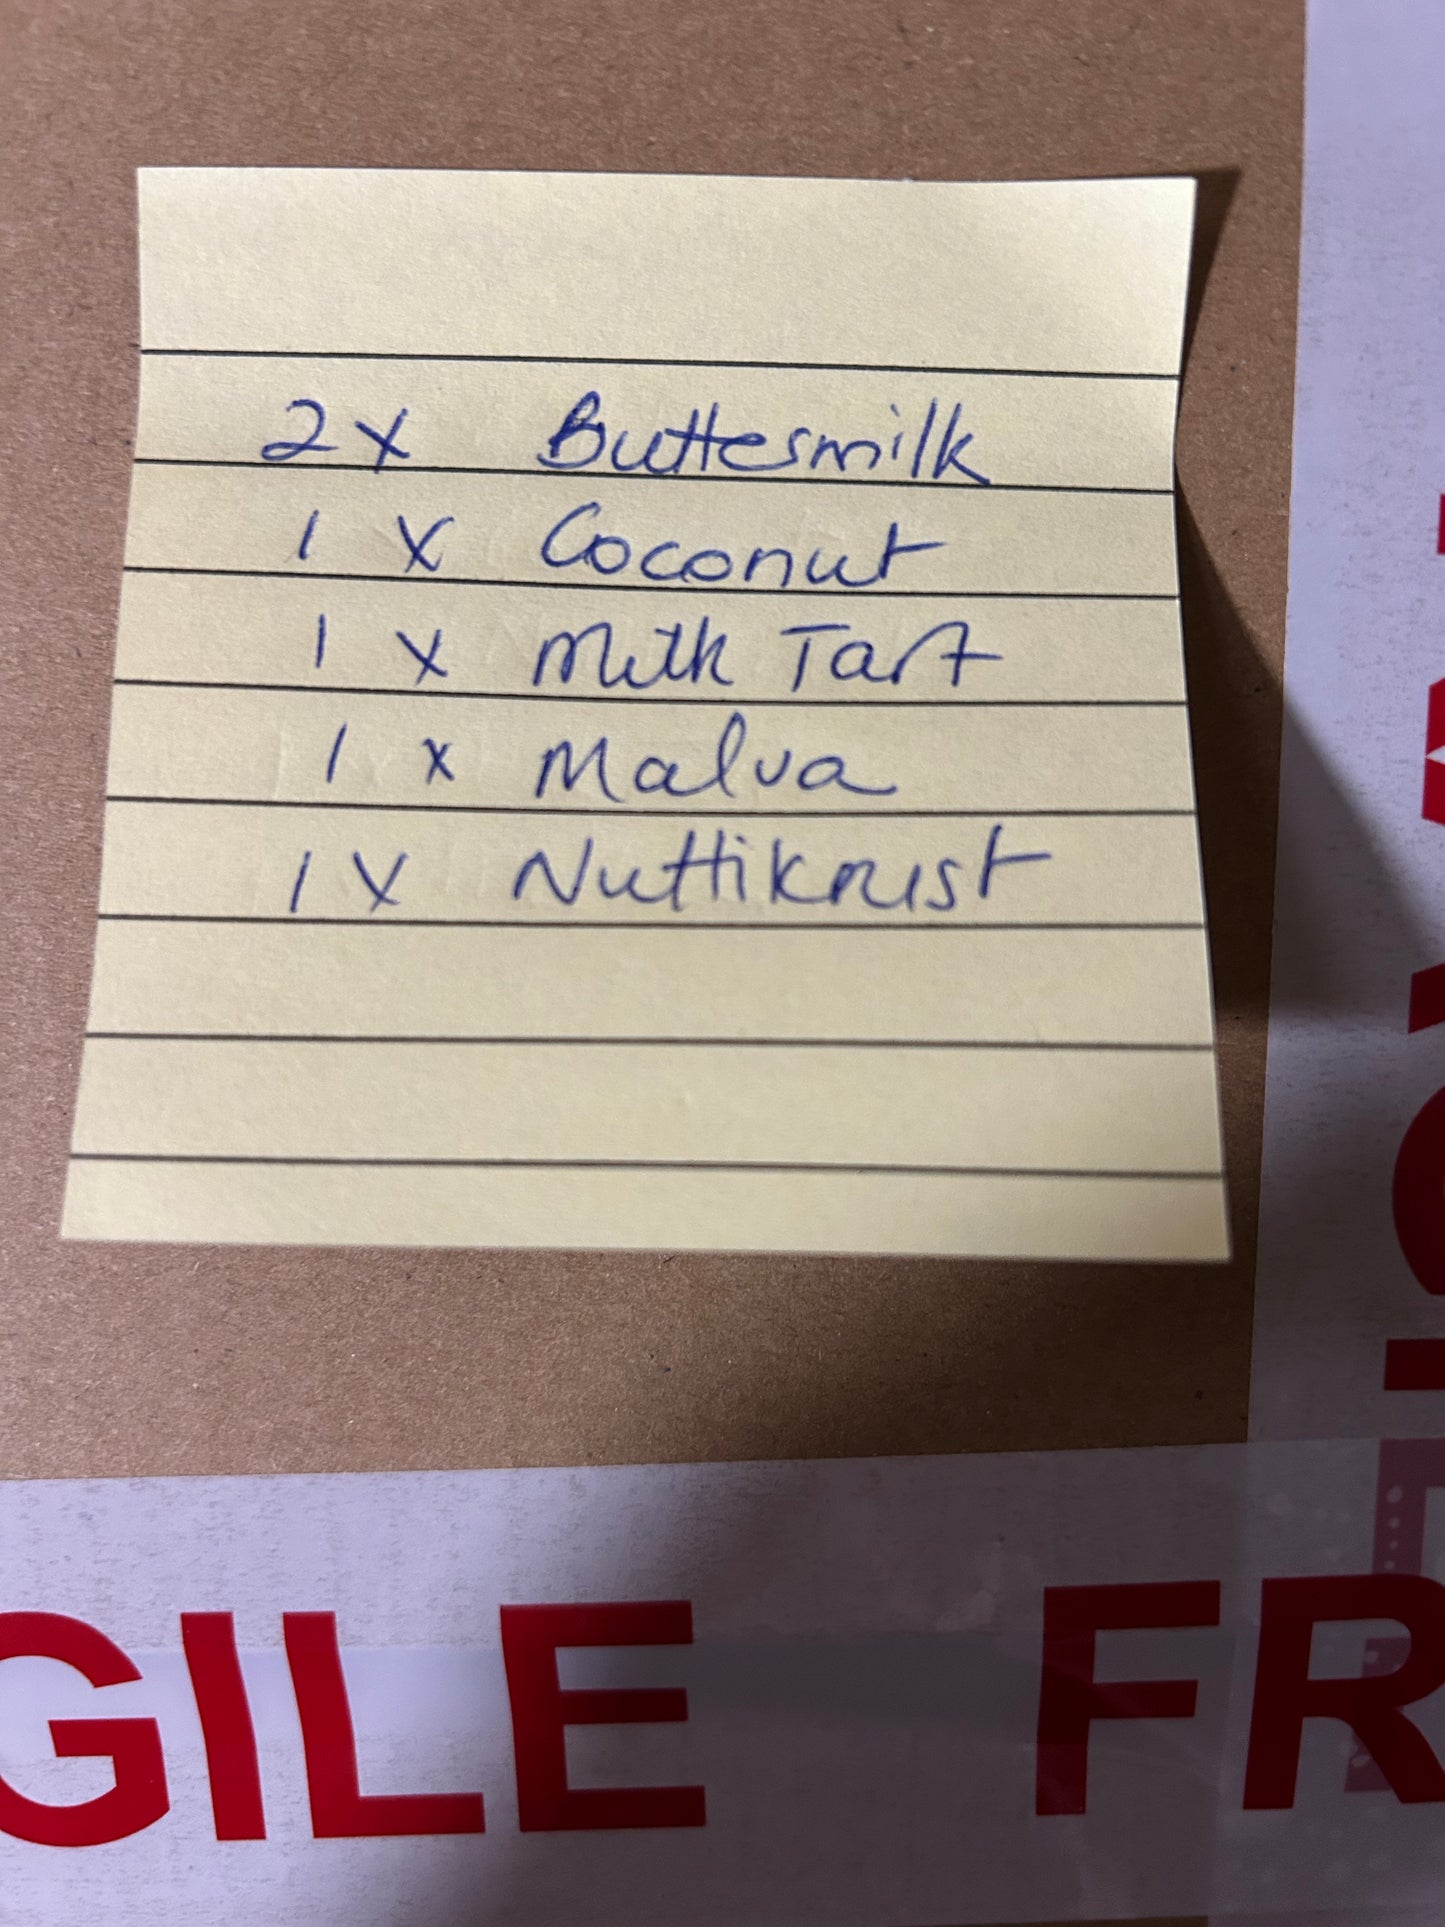 2 x Buttermilk
1 x Coconut
1 x Milk Tart
1 x Malva
1 x Nuttikrust
GILE FR